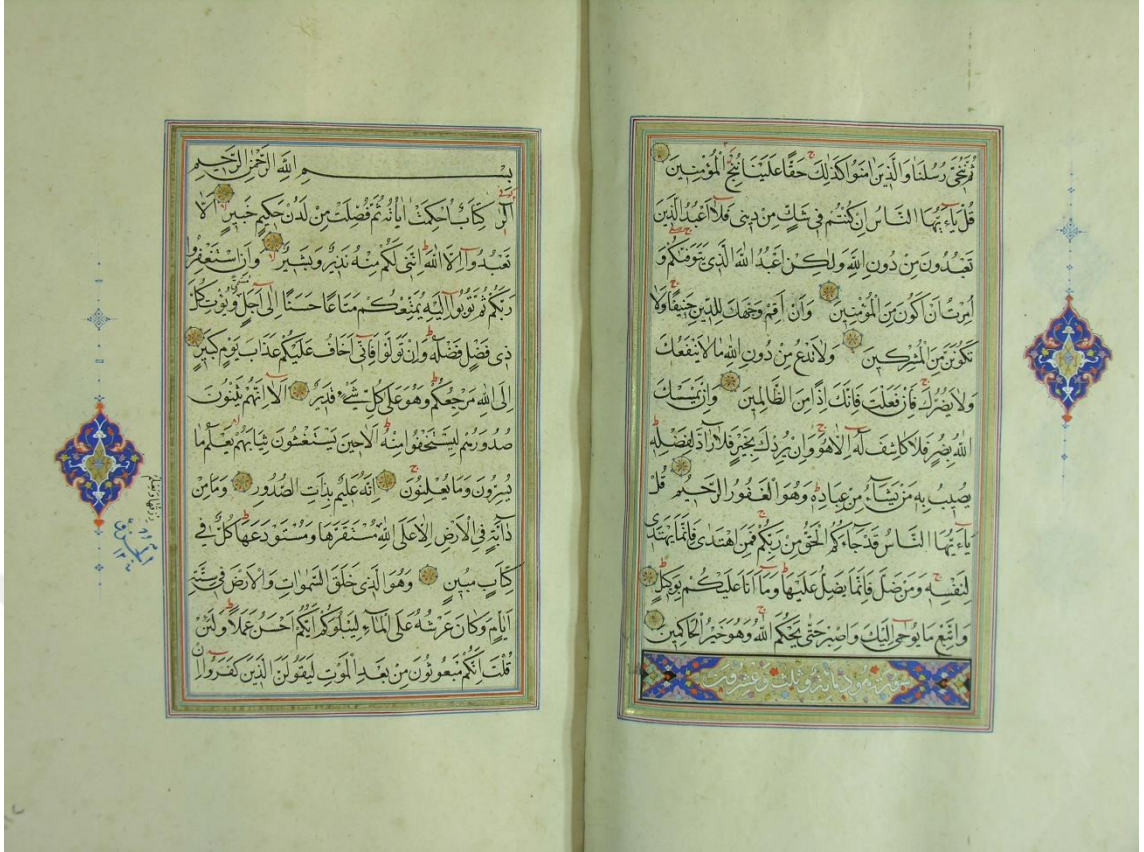 ثُمَّ نُنَجِّي رُسُلَنَا وَالَّذِينَ اٰمَنُوا كَذٰلِكَ حَقًّا عَلَيْنَا نُنْجِ الْمُؤْمِنِينَ
قُلْ يَاءَيُّهَا النَّاسُ اِنْ كُنْتُمْ فِي شَكٍّ مِنْ دِينِي فَلَا اَعْبُدُ الَّذِينَ
تَعْبُدُونَ مِنْ دُونِ اللّٰهِ وَلٰكِنْ اَعْبُدُ اللّٰهَ الَّذِي يَتَوَفّٰكُمْ وَ
اُمِرْتُ اَنْ اَكُونَ مِنَ الْمُؤْمِنِينَ وَاَنْ اَقِمْ وَجْهَكَ لِلدِّينِ حَنِيفًا وَلَا
تَكُونَنَّ مِنَ الْمُشْرِكِينَ وَلَا تَدْعُ مِنْ دُونِ اللّٰهِ مَا لَا يَنْفَعُكَ
وَلَا يَضُرُّكَ فَاِنْ فَعَلْتَ فَاِنَّكَ اِذًا مِنَ الظَّالِمِينَ وَاِنْ يَمْسَسْكَ
اللّٰهُ بِضُرٍّ فَلَا كَاشِفَ لَهُ اِلَّا هُوَ وَاِنْ يُرِدْكَ بِخَيْرٍ فَلَا رَادَّ لِفَضْلِهِ
يُصِيبُ بِهِ مَنْ يَشَاءُ مِنْ عِبَادِهِ وَهُوَ الْغَفُورُ الرَّحِيمُ قُلْ
يَاءَيُّهَا النَّاسُ قَدْ جَاءَكُمُ الْحَقُّ مِنْ رَبِّكُمْ فَمَنِ اهْتَدٰى فَاِنَّمَا يَهْتَدِي
لِنَفْسِهِ وَمَنْ ضَلَّ فَاِنَّمَا يَضِلُّ عَلَيْهَا وَمَا اَنَا عَلَيْكُمْ بِوَكِيلٍ
وَاتَّبِعْ مَا يُوحٰى اِلَيْكَ وَاصْبِرْ حَتّٰى يَحْكُمَ اللّٰهُ وَهُوَ خَيْرُ الْحَاكِمِينَ
سورة هود مائة وثلث وعشرون
بِسْمِ اللّٰهِ الرَّحْمٰنِ الرَّحِيمِ
الٓرٰ كِتَابٌ اُحْكِمَتْ اٰيَاتُهُ ثُمَّ فُصِّلَتْ مِنْ لَدُنْ حَكِيمٍ خَبِيرٍ اَلَّا
تَعْبُدُوا اِلَّا اللّٰهَ اِنَّنِي لَكُمْ مِنْهُ نَذِيرٌ وَبَشِيرٌ وَاَنِ اسْتَغْفِرُوا
رَبَّكُمْ ثُمَّ تُوبُوا اِلَيْهِ يُمَتِّعْكُمْ مَتَاعًا حَسَنًا اِلٰى اَجَلٍ مُسَمًّى وَيُؤْتِ كُلَّ
ذِي فَضْلٍ فَضْلَهُ وَاِنْ تَوَلَّوْا فَاِنِّي اَخَافُ عَلَيْكُمْ عَذَابَ يَوْمٍ كَبِيرٍ
اِلَى اللّٰهِ مَرْجِعُكُمْ وَهُوَ عَلٰى كُلِّ شَيْءٍ قَدِيرٌ اَلَا اِنَّهُمْ يَثْنُونَ
صُدُورَهُمْ لِيَسْتَخْفُوا مِنْهُ اَلَا حِينَ يَسْتَغْشُونَ ثِيَابَهُمْ يَعْلَمُ مَا
يُسِرُّونَ وَمَا يُعْلِنُونَ اِنَّهُ عَلِيمٌ بِذَاتِ الصُّدُورِ وَمَا مِنْ
دَابَّةٍ فِي الْاَرْضِ اِلَّا عَلَى اللّٰهِ رِزْقُهَا وَيَعْلَمُ مُسْتَقَرَّهَا وَمُسْتَوْدَعَهَا كُلٌّ فِي
كِتَابٍ مُبِينٍ وَهُوَ الَّذِي خَلَقَ السَّمٰوَاتِ وَالْاَرْضَ فِي سِتَّةِ
اَيَّامٍ وَكَانَ عَرْشُهُ عَلَى الْمَاءِ لِيَبْلُوَكُمْ اَيُّكُمْ اَحْسَنُ عَمَلًا وَلَئِنْ
قُلْتَ اِنَّكُمْ مَبْعُوثُونَ مِنْ بَعْدِ الْمَوْتِ لَيَقُولَنَّ الَّذِينَ كَفَرُوا اِنْ